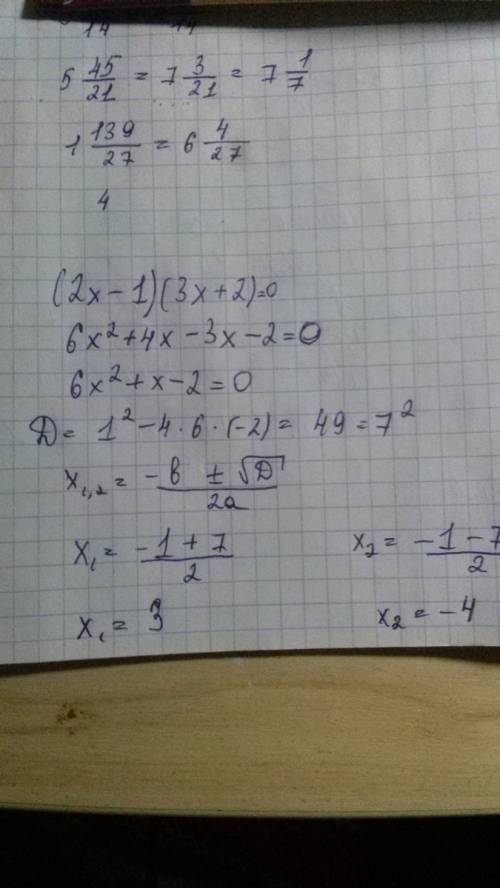 14 14
5 45/21 = 7 3/21 = 7 1/7
1 139/27 = 6 4/27
4
(2x-1)(3x+2)=0
6x²+4x-3x-2=0
6x²+x-2=0
D= 1²-4·6·(-2)= 49=7²
x₁,₂= -b ± √D / 2a
x₁= -1+7 / 2 x₂= -1-7 / 2
x₁= 3 x₂= -4